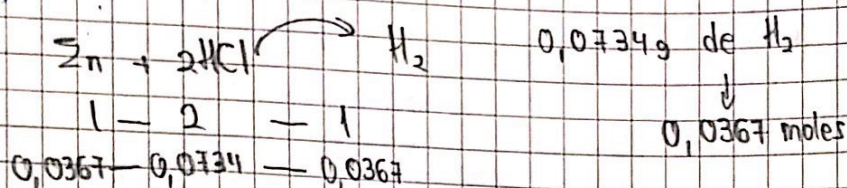 Zn + 2HCl → H₂ 0,0734g de H₂
↓
1 — 2 — 1 0,0367 moles
0,0367 — 0,0734 — 0,0367